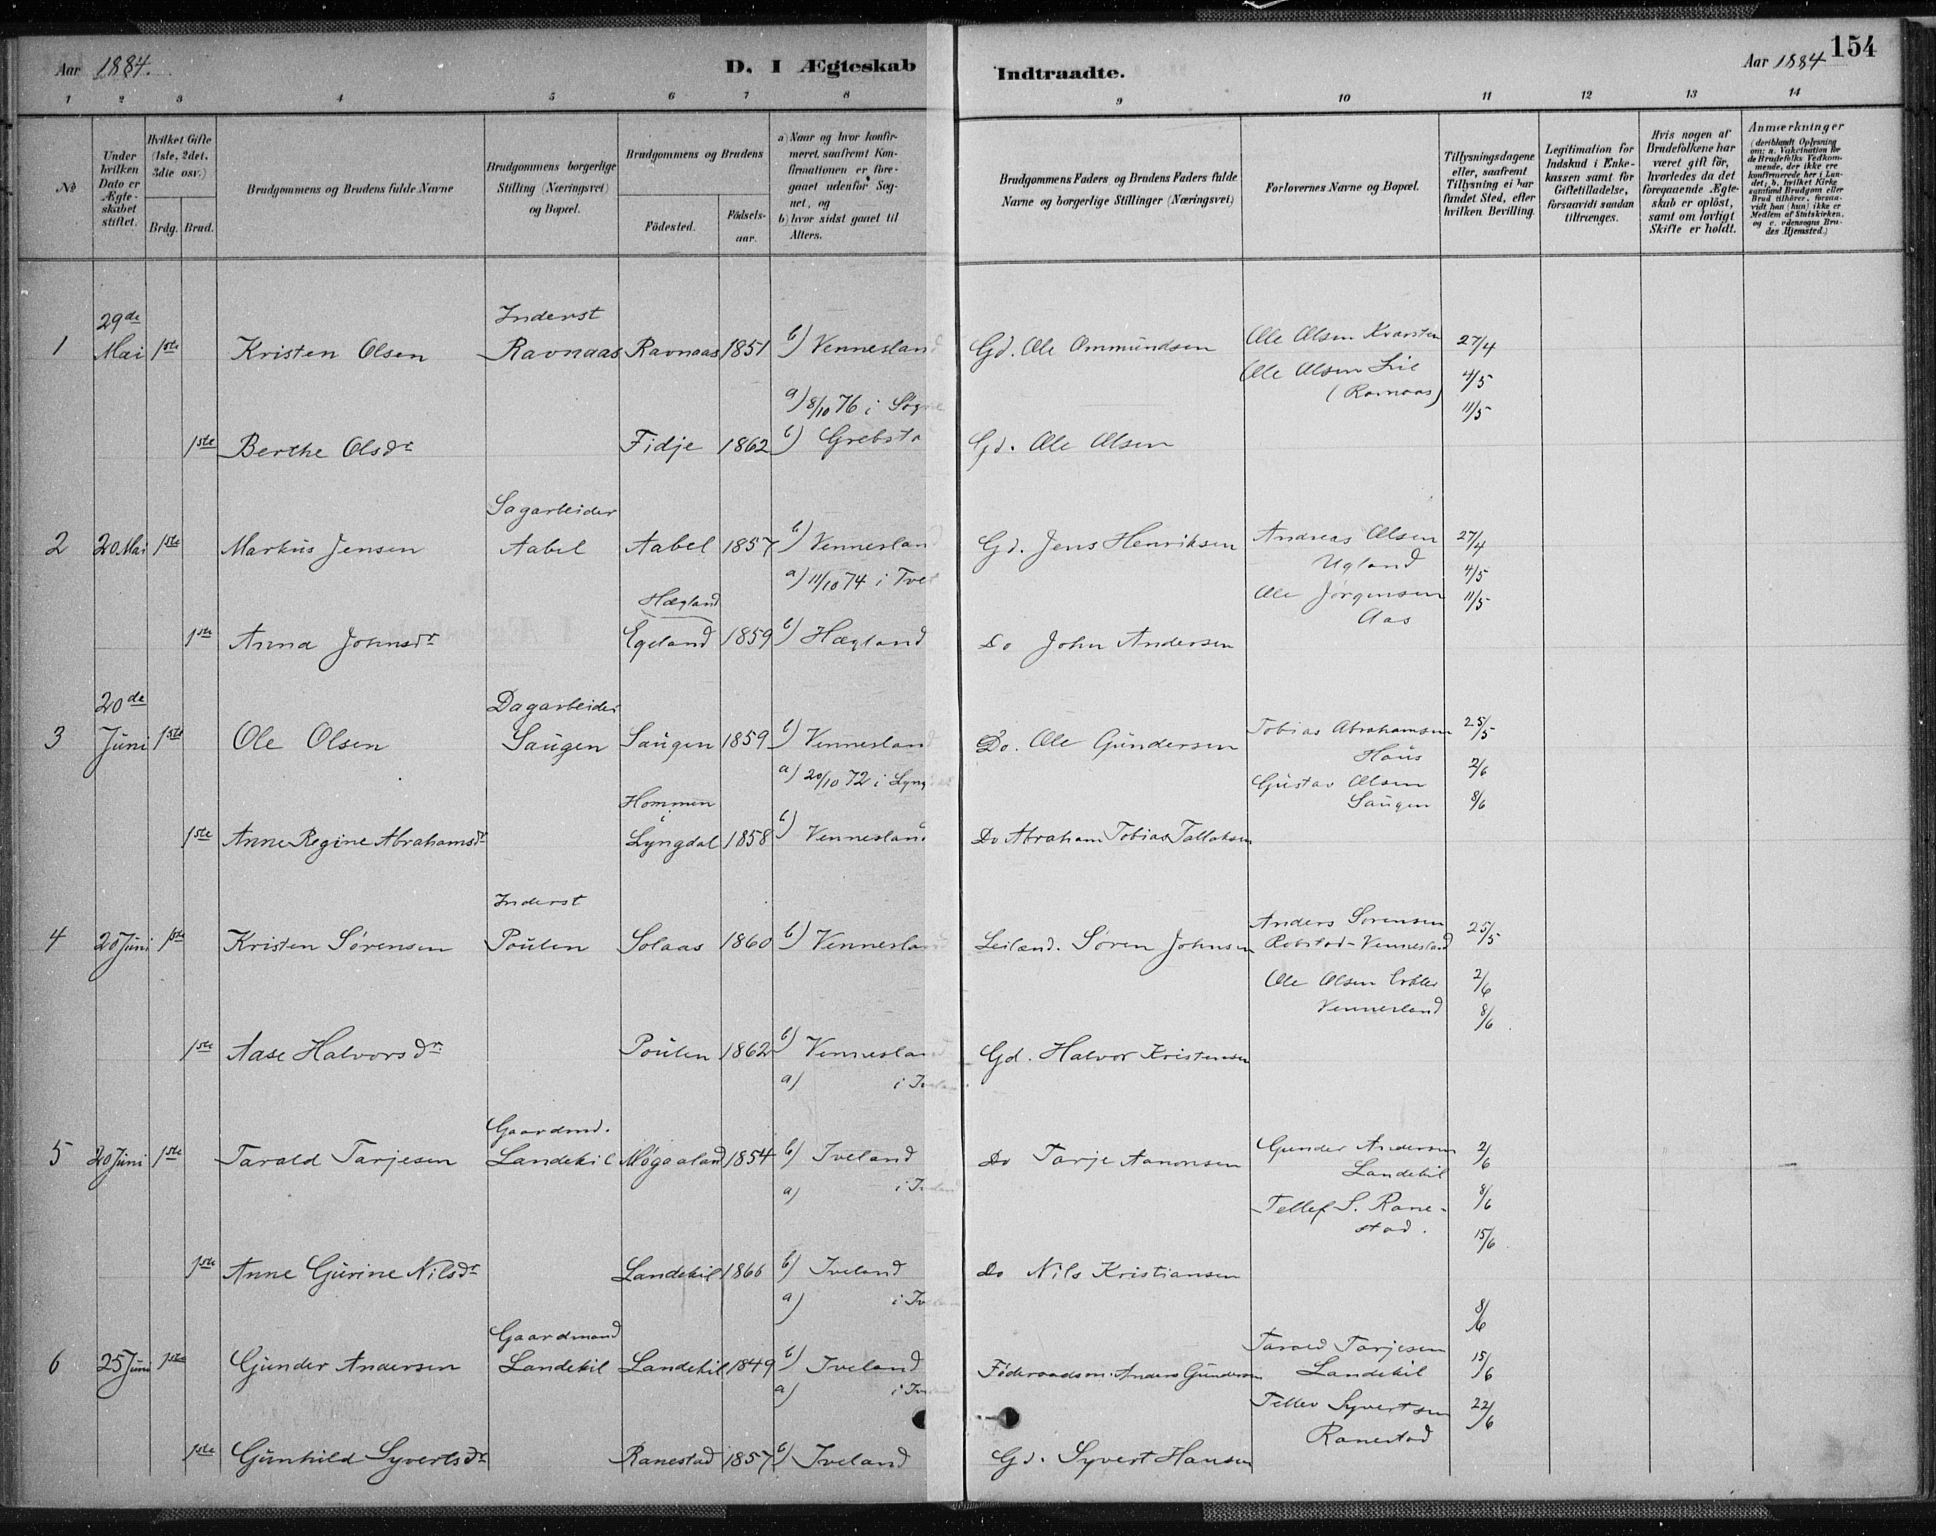 Aar 1884.
D. I Ægteskab Indtraadte.
Aar 1884
154
1 2 3 4 5 6 7 8 9 10 11 12 13 14
No
Under hvilken Dato er Ægteskabet stiftet.
Hvilket Gifte (1ste, 2det, 3die osv.)
Brdg. Brud.
Brudgommens og Brudens fulde Navne
Brudgommens borgerlige Stilling (Næringsvei) og Bopæl.
Brudgommens og Brudens
Födested.
Födsels-aar.
a) Naar og hvor konfirmeret, saafremt Konfirmationen er foregaaet udenfor Sognet, og
b) hvor sidst gaaet til Alters.
Brudgommens Faders og Brudens Faders fulde Navne og borgerlige Stillinger (Næringsvei)
Forlovernes Navne og Bopæl.
Tillysningsdagene eller, saafremt Tillysning ei har fundet Sted, efter hvilken Bevilling.
Legitimation for Indskud i Enkekassen samt for Giftetilladelse, forsaavidt saadan tiltrænges.
Hvis nogen af Brudefolkene har været gift för, hvorledes da det foregaaende Ægteskab er oplöst, samt om lovligt Skifte er holdt.
Anmærkninger
(deriblandt Oplysning om: a. Vakcination for de Brudefolks Vedkommende, der ikke ere konfirmerede her i Landet, b. hvilket Kirkesamfund Brudgom eller Brud tilhörer, forsaavidt han (hun) ikke er Medlem af Statskirken, og c. udensogns Brudes Hjemsted.)
29de Inderst
1 Mai 1ste Kristen Olsen Ravnaas Ravnaas 1851 b) Vennesland Gd. Ole Ommundsen Ole Olsen Kvarsten 27/4
Ole Olsen 4/5
a) 8/10 76 i Søgne (Ravnaas) 11/5
1ste Berthe Olsdr Fidje 1862 b) Grebsta Gd. Ole Olsen
Sagarbeider
2 20 Mai 1ste Markus Jensen Aabel Aabel 1857 b) Vennesland Gd. Jens Henriksen Andreas Olsen 27/4
Ugland 4/5
a) 11/10 74 i Tvet
Hægland Ole Jørgensen 11/5
Aas
1ste Anna Johnsdr Egeland 1859 b) Hægland Do John Andersen
20de Dagarbeider
3 Juni 1ste Ole Olsen Saugen Saugen 1859 b) Vennesland Do. Ole Gundersen Tobias Abrahamsen 25/5
Haus 2/6
a) 20/10 72 i Lyng Gustav Olsen
Hommen i Saugen 8/6
1ste Anne Regine Abrahamsdr Lyngdal 1858 b) Vennesland Do Abraham Tobias Tallaksen
Inderst
4 20 Juni 1ste Kristen Sørensen Poulen Solaas 1860 b) Vennesland Leilænd. Søren Johnsen Anders Sørensen 25/5
Robstad-Vennesland
Ole Olsen 2/6
Vennesland 8/6
1ste Aase Halvorsdr Poulen 1862 b) Vennesland Gd. Halvor Kristensen
a) i Iveland
Gaardmd.
5 20 Juni 1ste Tarald Tarjesen Landekil Møgaaland 1854 b) Iveland Do Tarje Aanonsen Gunder Andersen 2/6
Landekil
a) i Iveland
Tellef S. Rane- 8/6
stad. 15/6
1ste Anne Gurine Nilsdr Landekil 1866 b) Iveland Do Nils Kristiansen
a) i Iveland
8/6
Gaardmand
6 25 Juni 1ste Gunder Andersen Landekil Landekil 1849 b) Iveland Føderaadsm. Anders Gundersen Tarald Tarjesen
Landekil 15/6
a) i Iveland
Tellev Syvertsen 22/6
Ranestad
1ste Gunhild Syvertsdr Ranestad 1857 b) Iveland Gd. Syvert Hansen